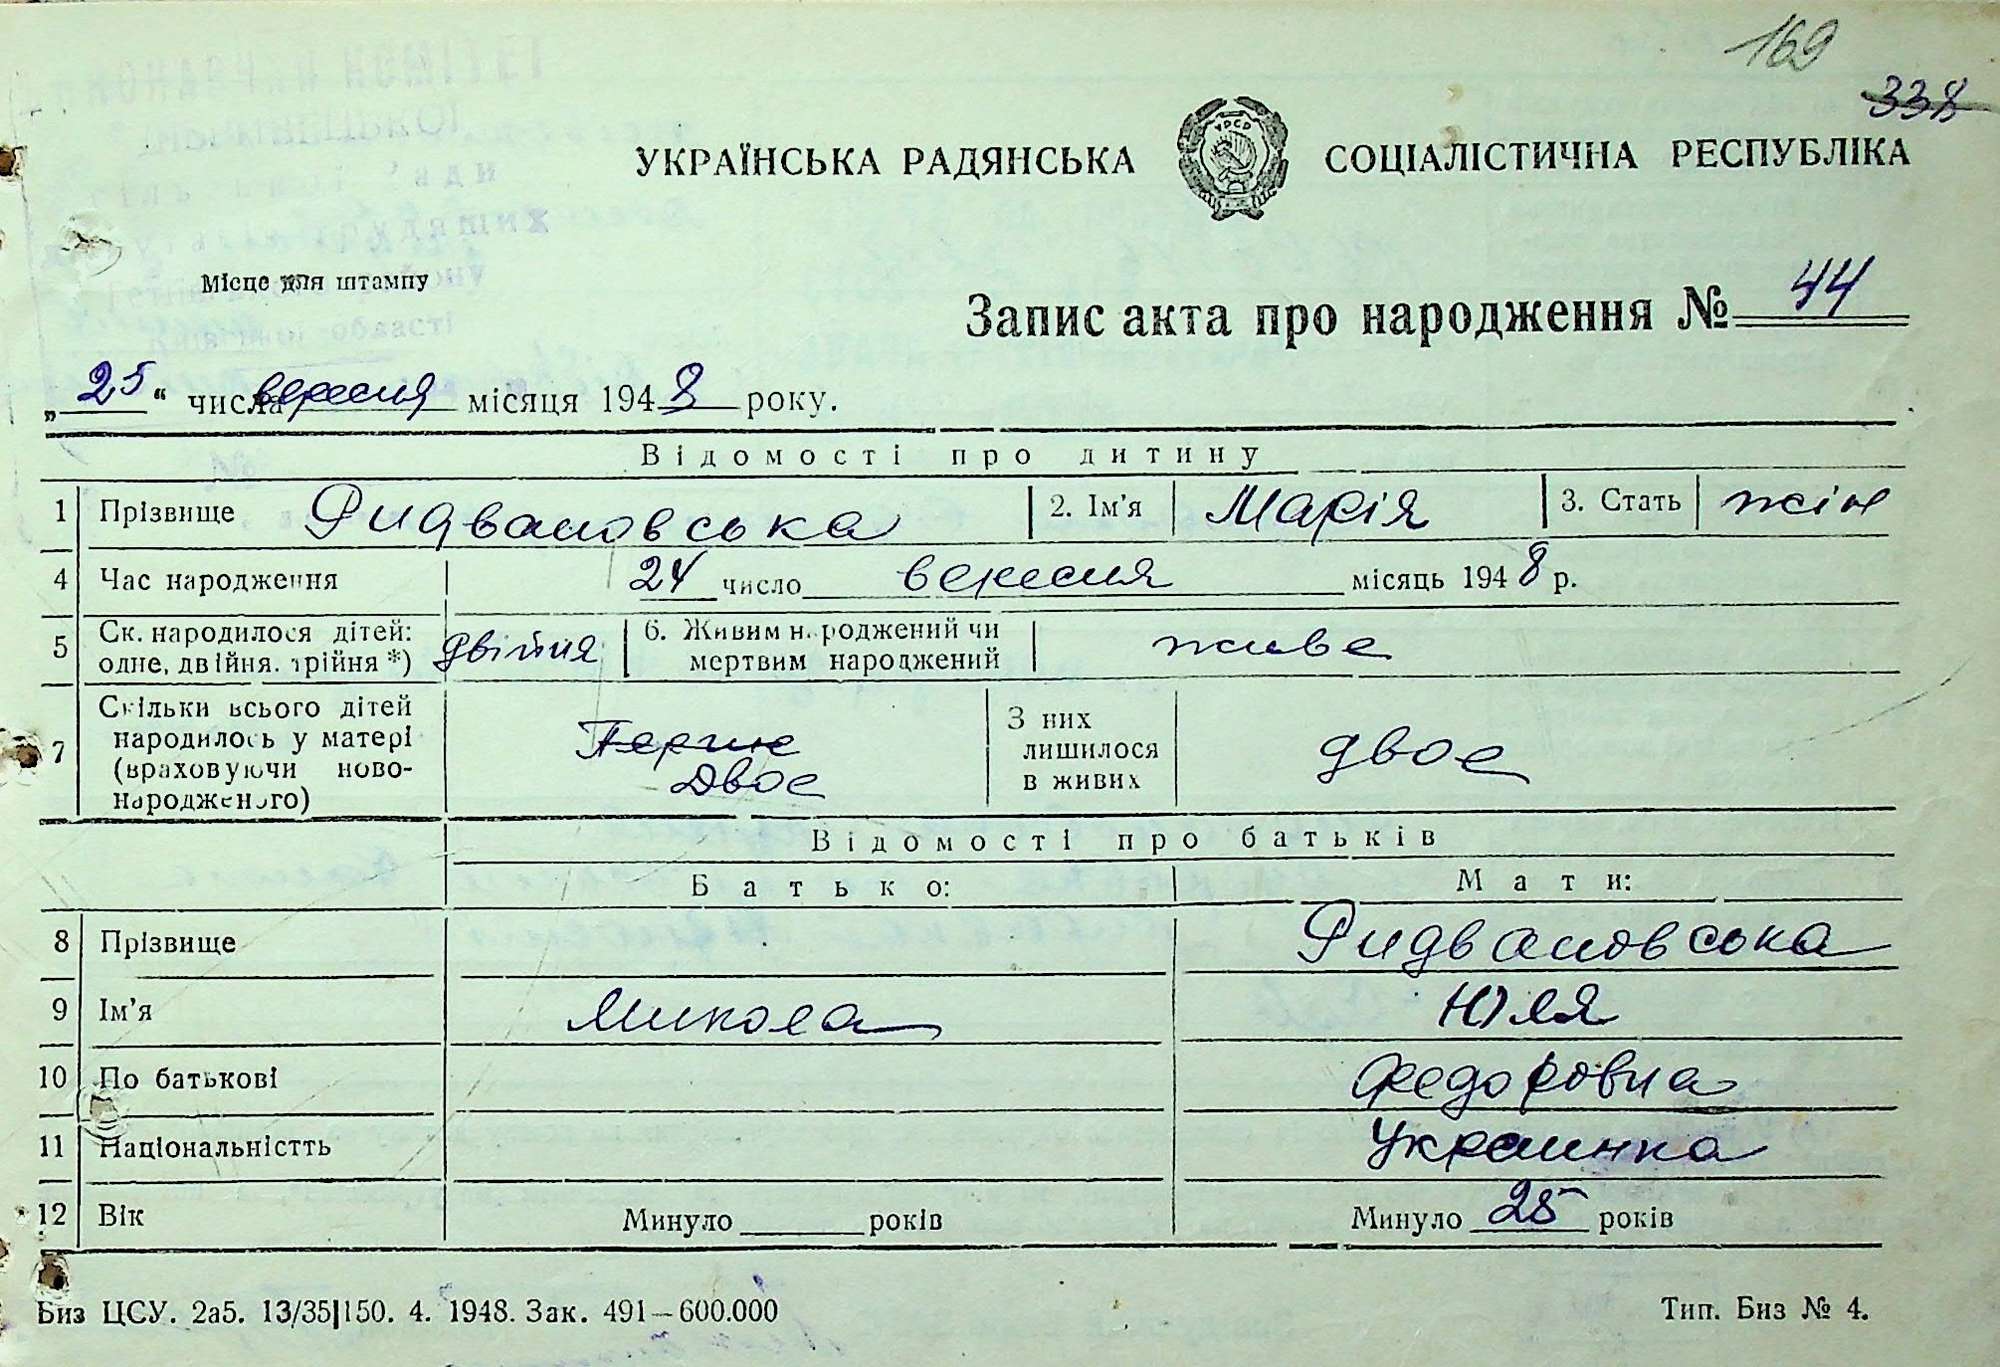 169
338
УКРАЇНСЬКА РАДЯНСЬКА СОЦІАЛІСТИЧНА РЕСПУБЛІКА
УРСР
Місце для штампу
Запис акта про народження № 44
„25“ числа вересня місяця 1948 року.
Відомості про дитину
1 Прізвище Ридвановська 2. Ім'я Марія 3. Стать жін
4 Час народження 24 число вересня місяць 1948 р.
5 Ск. народилося дітей: одне, двійня. трійня *) двійня 6. Живим народжений чи мертвим народжений живе
7 Скільки всього дітей народилось у матері (враховуючи новонародженого) Двое З них лишилося в живих двое
Відомості про батьків
Батько: Мати:
8 Прізвище Ридвановська
9 Ім'я Микола Юля
10 По батькові Федоровна
11 Національністть Украинка
12 Вік Минуло ____ років Минуло 25 років
Биз ЦСУ. 2а5. 13/35|150. 4. 1948. Зак. 491—600.000 Тип. Биз № 4.